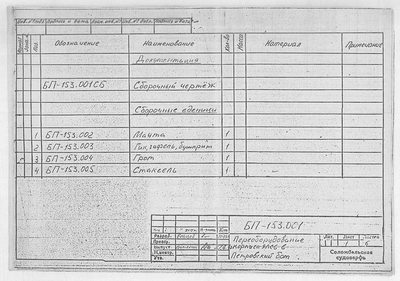 Обозначение Наименование Кол-во Масса Материал Примечание
Документация
БП-153.001СБ Сборочный чертёж
Сборочные единицы
1 БП-153.002 Мачта 1
2 БП-153.003 Гик, гафель, бушприт 1
3 БП-153.004 Грот 1
4 БП-153.005 Стаксель 1
БП-153.001
Переоборудование
Петровский бот
Лит. Лист Листов
1 6
Соломбальская
судоверфь